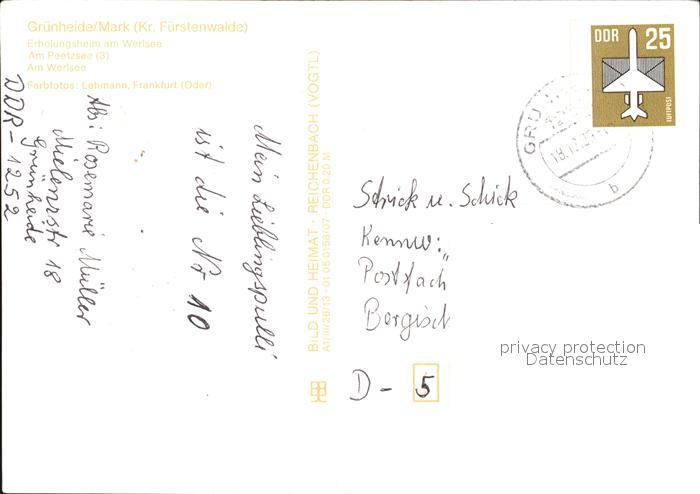 Grünheide/Mark (Kr. Fürstenwalde)
Erholungsheim am Werlsee
Am Peetzsee (3)
Am Werlsee
Farbfotos: Lehmann, Frankfurt (Oder)
Abs: Rosemarie Müller
18
Grünheide
DDR-1252
Mein Lieblingspulli
ist die Nr 10
BILD UND HEIMAT · REICHENBACH (VOGTL)
A1/III/26/13-01 06 0156/07 DDR 0.20 M
DDR 25
LUFTPOST
GRÜ
b
Strick u. Schick
Kennw: „
Postfach
Bergisch
D - 5
privacy protection
Datenschutz